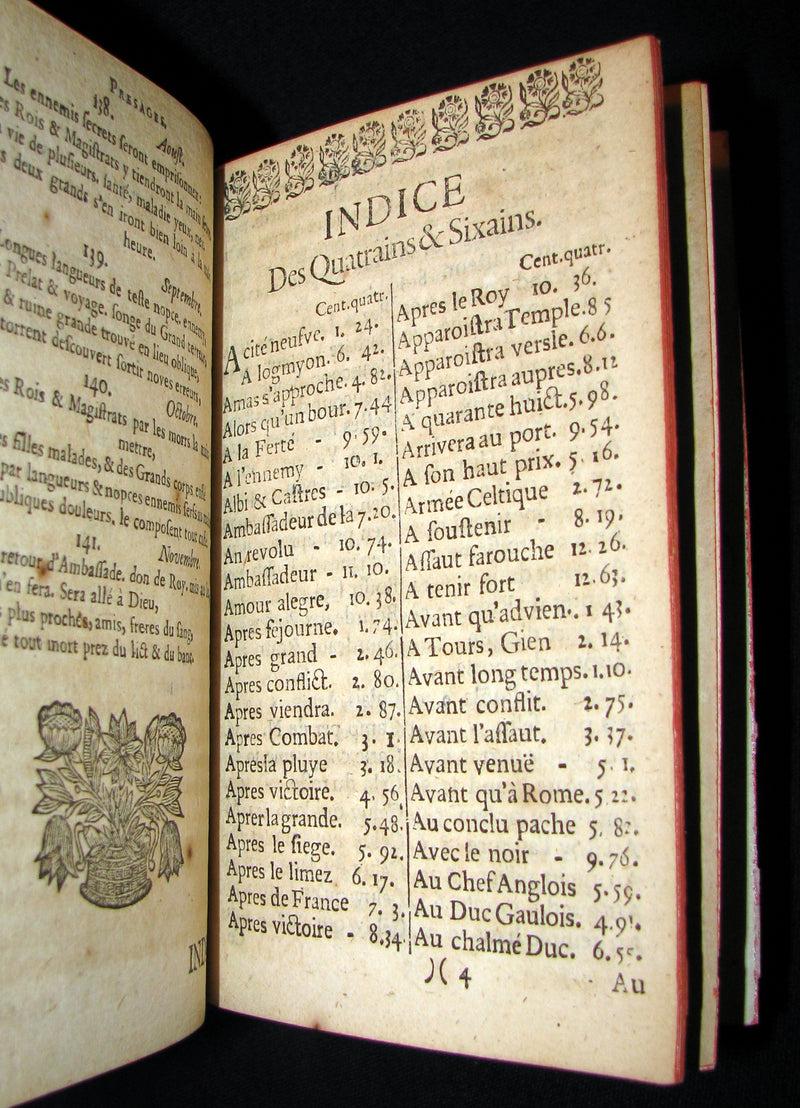 PRESAGES,
138. Aoust,
Les ennemis secrets seront emprisonnez:
Rois & Magistrats y tiendront la main
vie de plusieurs, santé, maladie yeux, nez,
deux grands s'en iront bien loin à la
heure.
139. Septembre,
Longues langueurs de teste nopce, ennemy,
Prelat & voyage, songe du Grand
& ruine grande trouvé en lieu oblique,
torrent descouvert sortir noves erreurs,
140. Octobre,
Rois & Magistrats par les morts la main
mettre,
filles malades, & des Grands corps
par langueurs & nopces ennemis serfs au
publiques douleurs, le composent tout
141. Novembre,
retour d'Ambassade, don de Roy, mis au
n'en fera. Sera allé à Dieu,
plus prochés, amis, freres du sang,
tout mort prez du lict & du banc,
IND
INDICE
Des Quatrains & Sixains.
Cent.quatr.
A cité neufve. 1. 24.
A logmyon. 6. 42.
Amas s'approche. 4. 82.
Alors qu'un bour. 7.44
A la Ferté - 9. 59.
A l'ennemy - 10. 1.
Albi & Castres - 10. 5.
Ambassadeur de la 7.20.
An revolu - 10. 74.
Ambassadeur - 11. 10.
Amour alegre, 10. 38.
Apres sejourne. 1.74.
Apres grand - 2. 46.
Apres conflict. 2. 80.
Apres viendra. 2. 87.
Apres Combat. 3. 1.
Apresla pluye 3. 18.
Apres victoire. 4. 56
Aprerla grande. 5.48.
Apres le siege. 5. 92.
Apres le limez 6. 17.
Apres de France 7. 3.
Apres victoire - 8.34.
Cent.quatr.
Apres le Roy 10. 36.
Apparoistra Temple.8 5
Apparoistra versie. 6.6.
Apparoistra aupres.8.12
A quarante huict.5.98.
Arrivera au port. 9.54.
A son haut prix. 5. 16.
Armée Celtique 2.72.
A soustenir - 8. 19.
Assaut farouche 12. 26.
A tenir fort 12.63.
Avant qu'advien. 1 43.
A Tours, Gien 2. 14.
Avant long temps.1.10.
Avant conflit. 2. 75.
Avant l'assaut. 3. 37.
Avant venuë - 5. 1.
Avant qu'à Rome.5 22.
Au conclu pache 5. 82.
Avec le noir - 9.76.
Au Chef Anglois 5.59.
Au Duc Gaulois. 4.91.
Au chalmé Duc. 6.55.
)( 4
Au